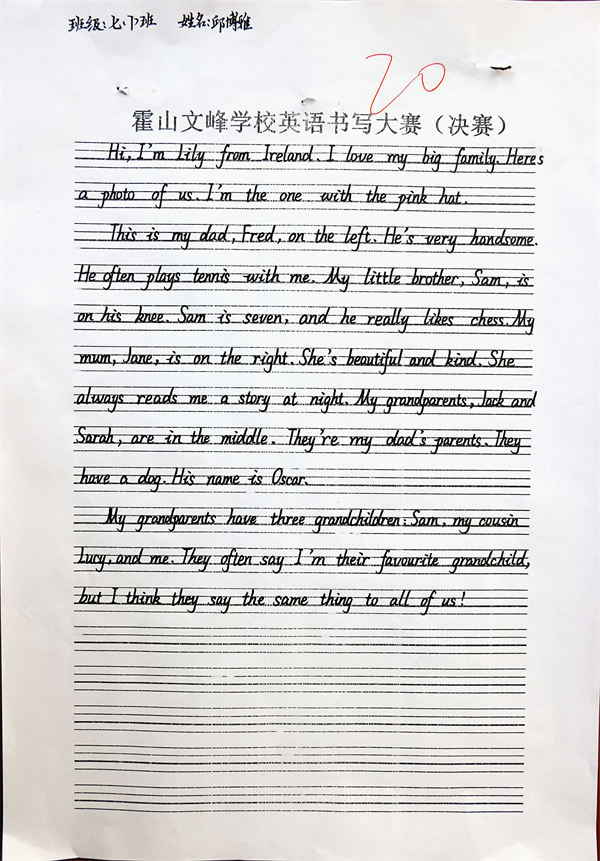 班级:七.(7)班 姓名:邱博雅
20
霍山文峰学校英语书写大赛（决赛）
Hi, I'm Lily from Ireland. I love my big family. Here's
a photo of us. I'm the one with the pink hat.
This is my dad, Fred, on the left. He's very handsome.
He often plays tennis with me. My little brother, Sam, is
on his knee. Sam is seven, and he really likes chess. My
mum, Jane, is on the right. She's beautiful and kind. She
always reads me a story at night. My grandparents, Jack and
Sarah, are in the middle. They're my dad's parents. They
have a dog. His name is Oscar.
My grandparents have three grandchildren: Sam, my cousin
Lucy, and me. They often say I'm their favourite grandchild,
but I think they say the same thing to all of us!